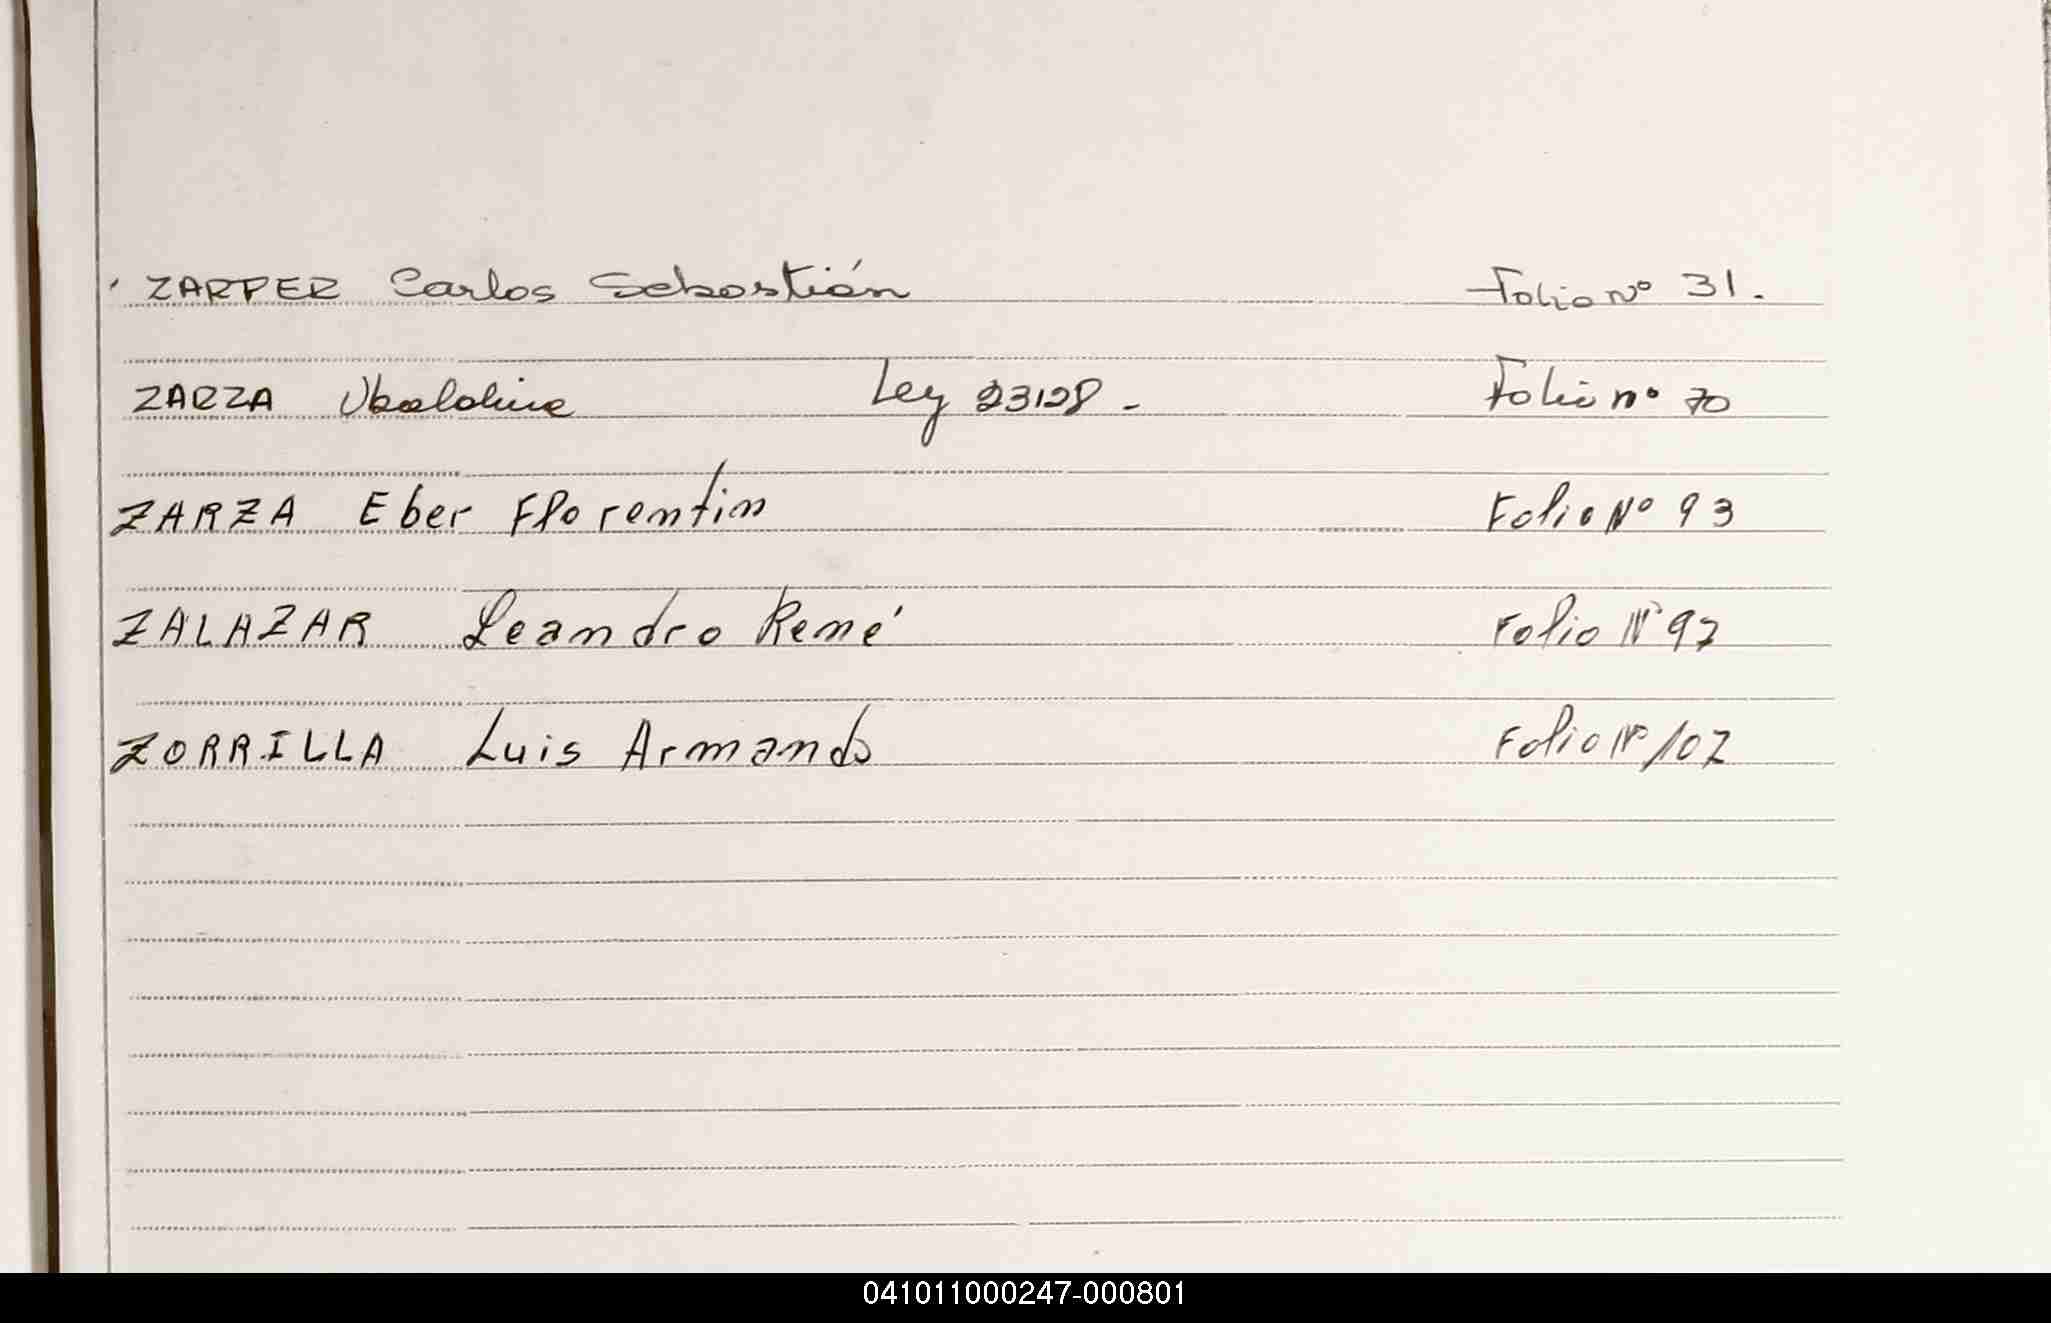 ZARPER Carlos Sebastián Folio Nº 31.
ZARZA Ubaldina Ley 23128 - Folio nº 70
ZARZA Eber Florentin Folio Nº 93
ZALAZAR Leandro René Folio Nº 97
ZORRILLA Luis Armando Folio Nº 107
041011000247-000801